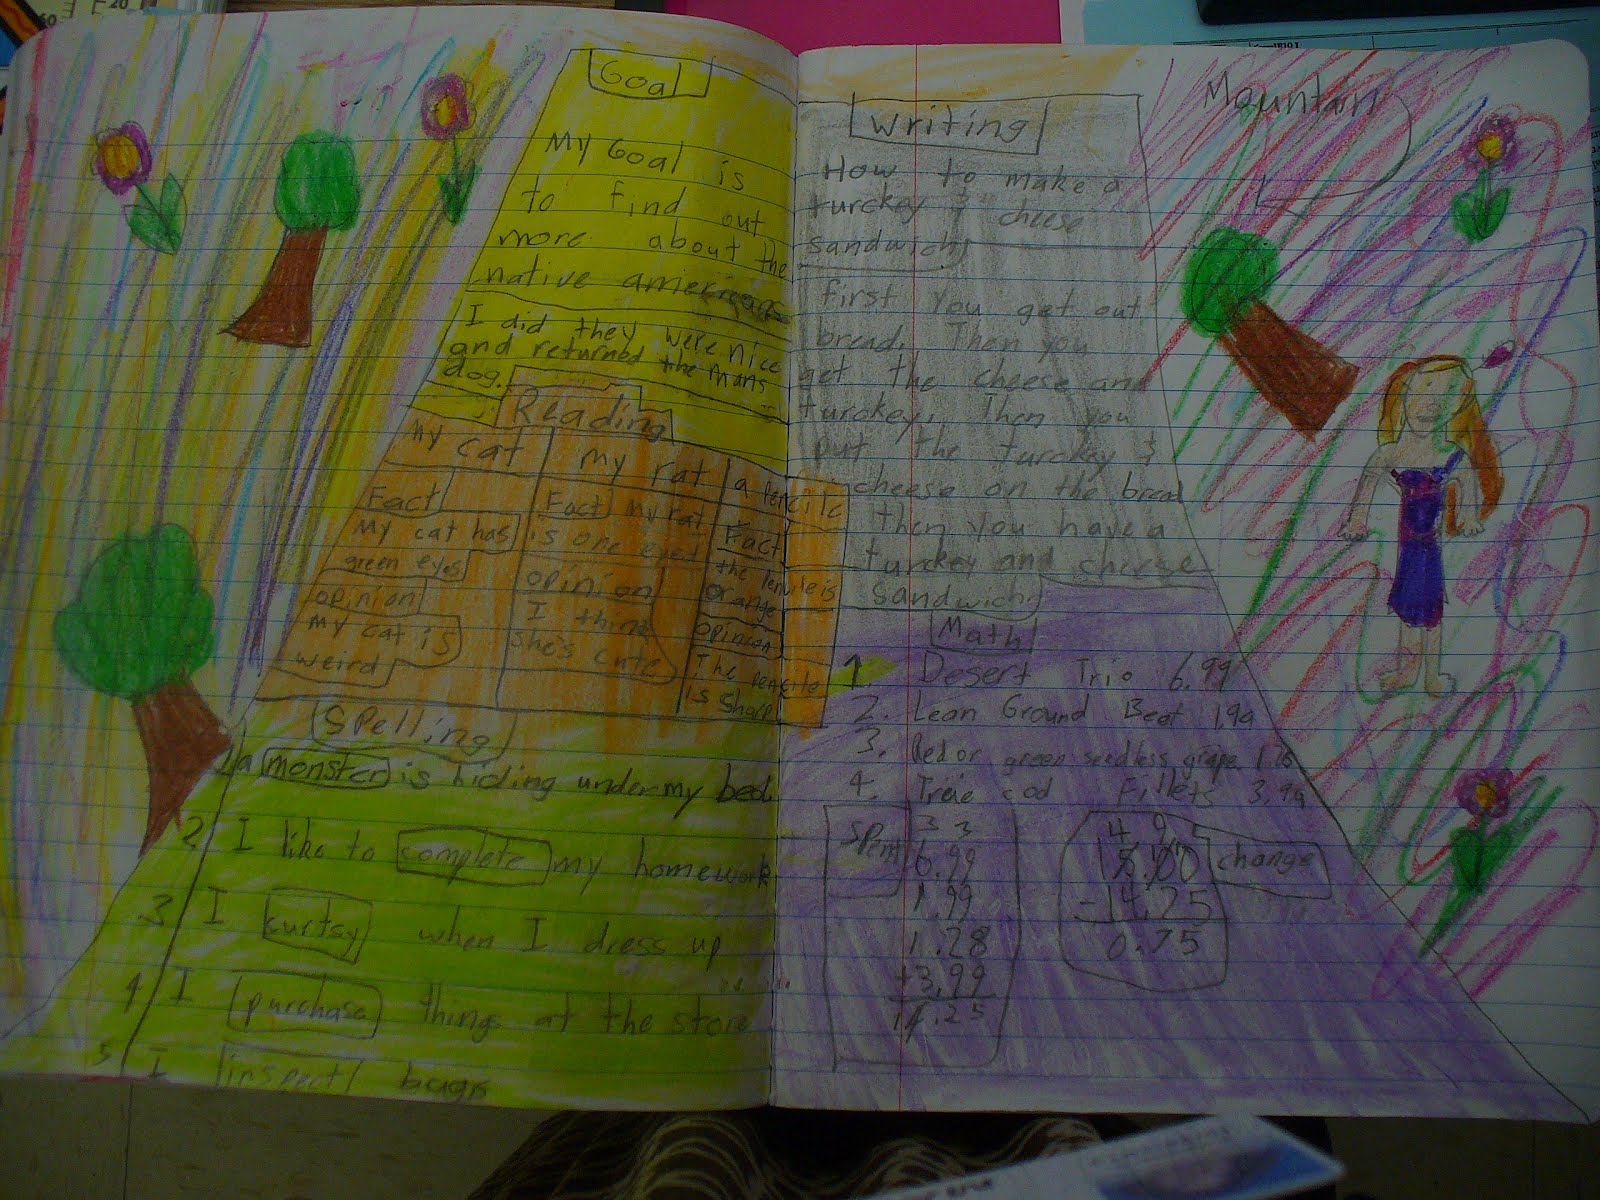 Goal
My Goal is
to find out
more about the
native americans
I did they were nice
and returned the mans
dog.
Reading
My cat
Fact
My cat has
green eyes
opinion
My cat is
weird
my rat
Fact my rat
is one eyed
opinion
I think
she's cute
a pencile
Fact
the pencile is
orange
opinion
The
is sharp
Spelling
1 a monster is hiding under my bed.
2 I like to complete my homework
3 I curtsy when I dress up
4 I purchase things at the store
5 I inspect bugs
Writing
How to make a
turckey & cheese
sandwich
first you get out
bread. Then you
get the cheese and
turckey. Then you
put the turckey &
cheese on the bread
then you have a
turckey and cheese
sandwich.
Math
1. Desert Trio 6.99
2. Lean Ground Beef 1.99
3. Red or green seedless grape 1.28
4. cod Fillets 3.99
spent
3 3
6.99
1.99
1.28
+3.99
14.25
4 9
15.00
-14.25
0.75
change
Mountain